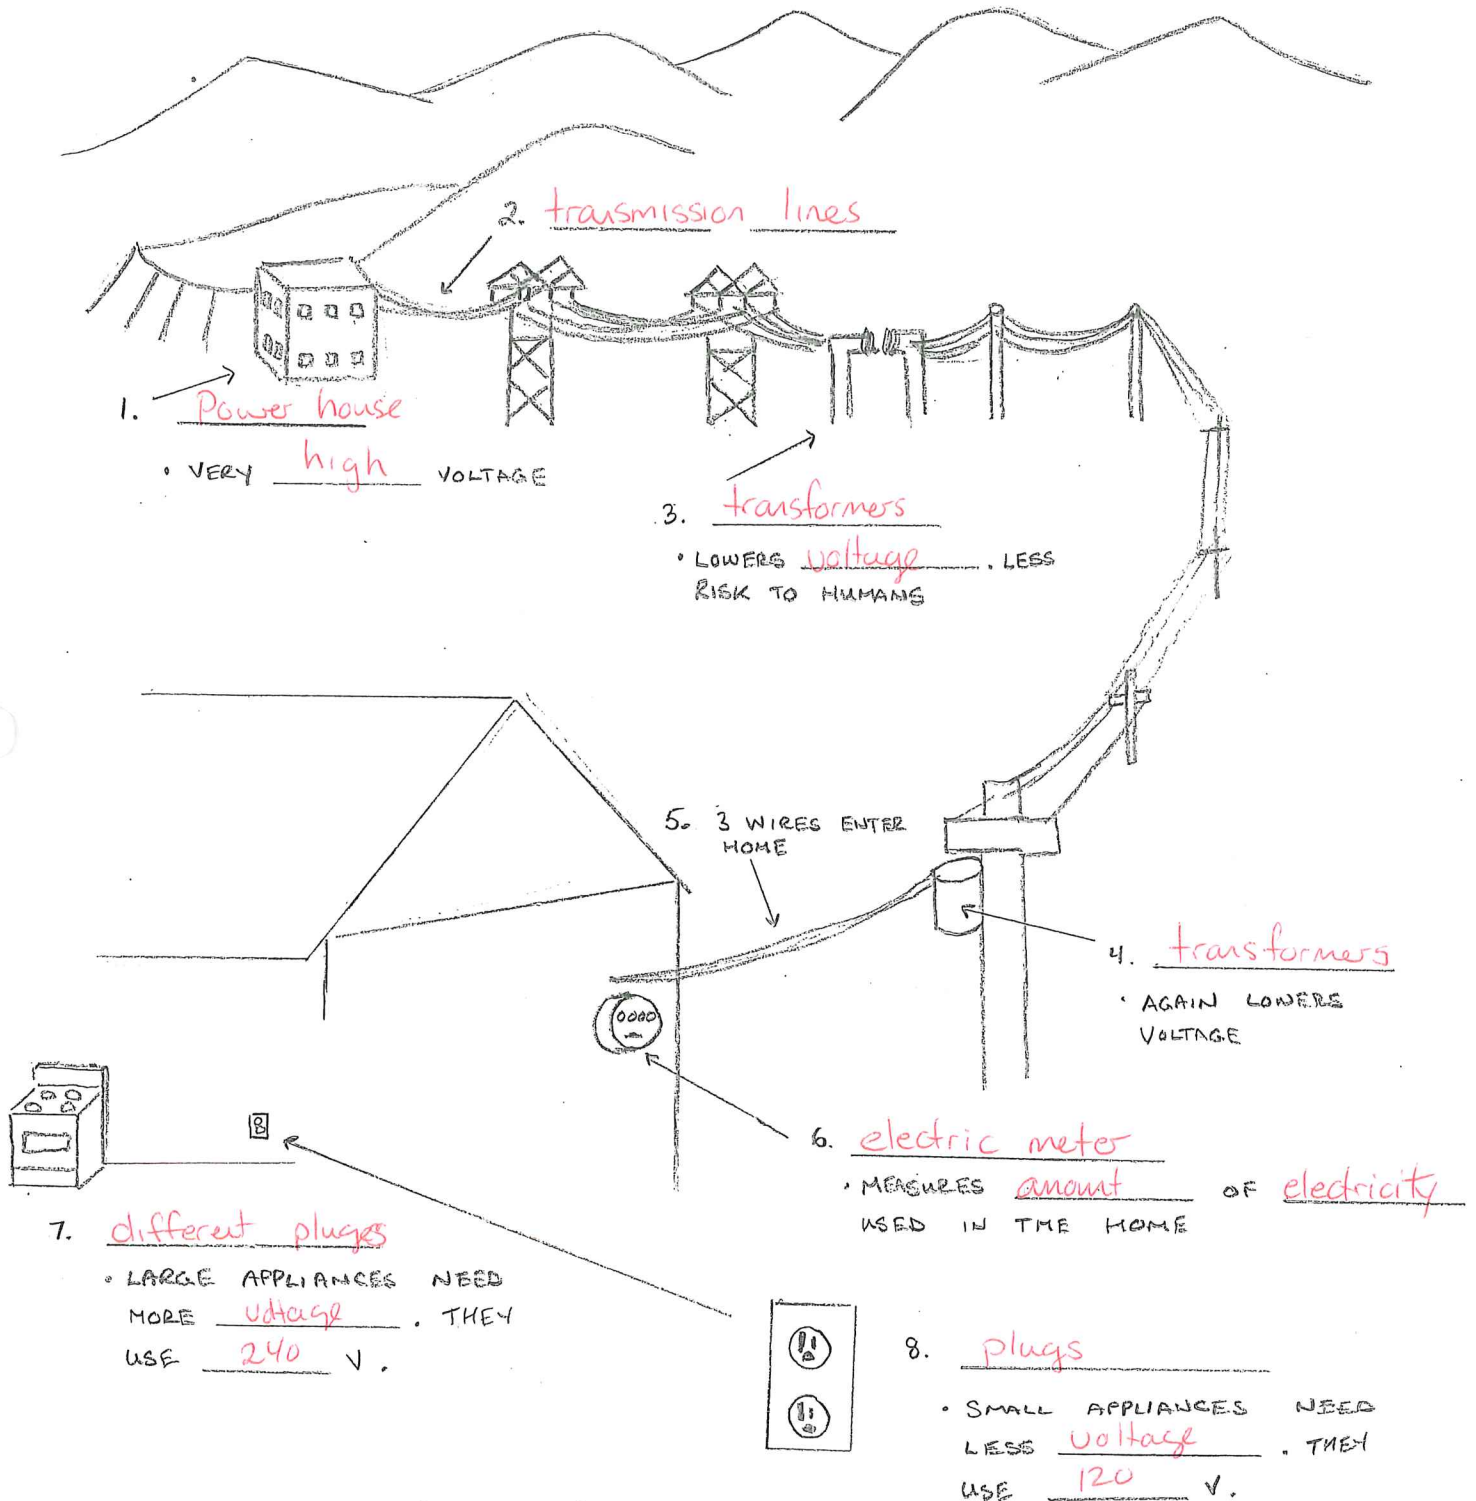 2. transmission lines
1. Power house
• VERY high VOLTAGE
3. transformers
• LOWERS voltage. LESS
RISK TO HUMANS
5. 3 WIRES ENTER
HOME
4. transformers
• AGAIN LOWERS
VOLTAGE
6. electric meter
• MEASURES amount OF electricity
USED IN THE HOME
7. different pluges
• LARGE APPLIANCES NEED
MORE voltage. THEY
USE 240 V.
8. plugs
• SMALL APPLIANCES NEED
LESS voltage. THEY
USE 120 V.